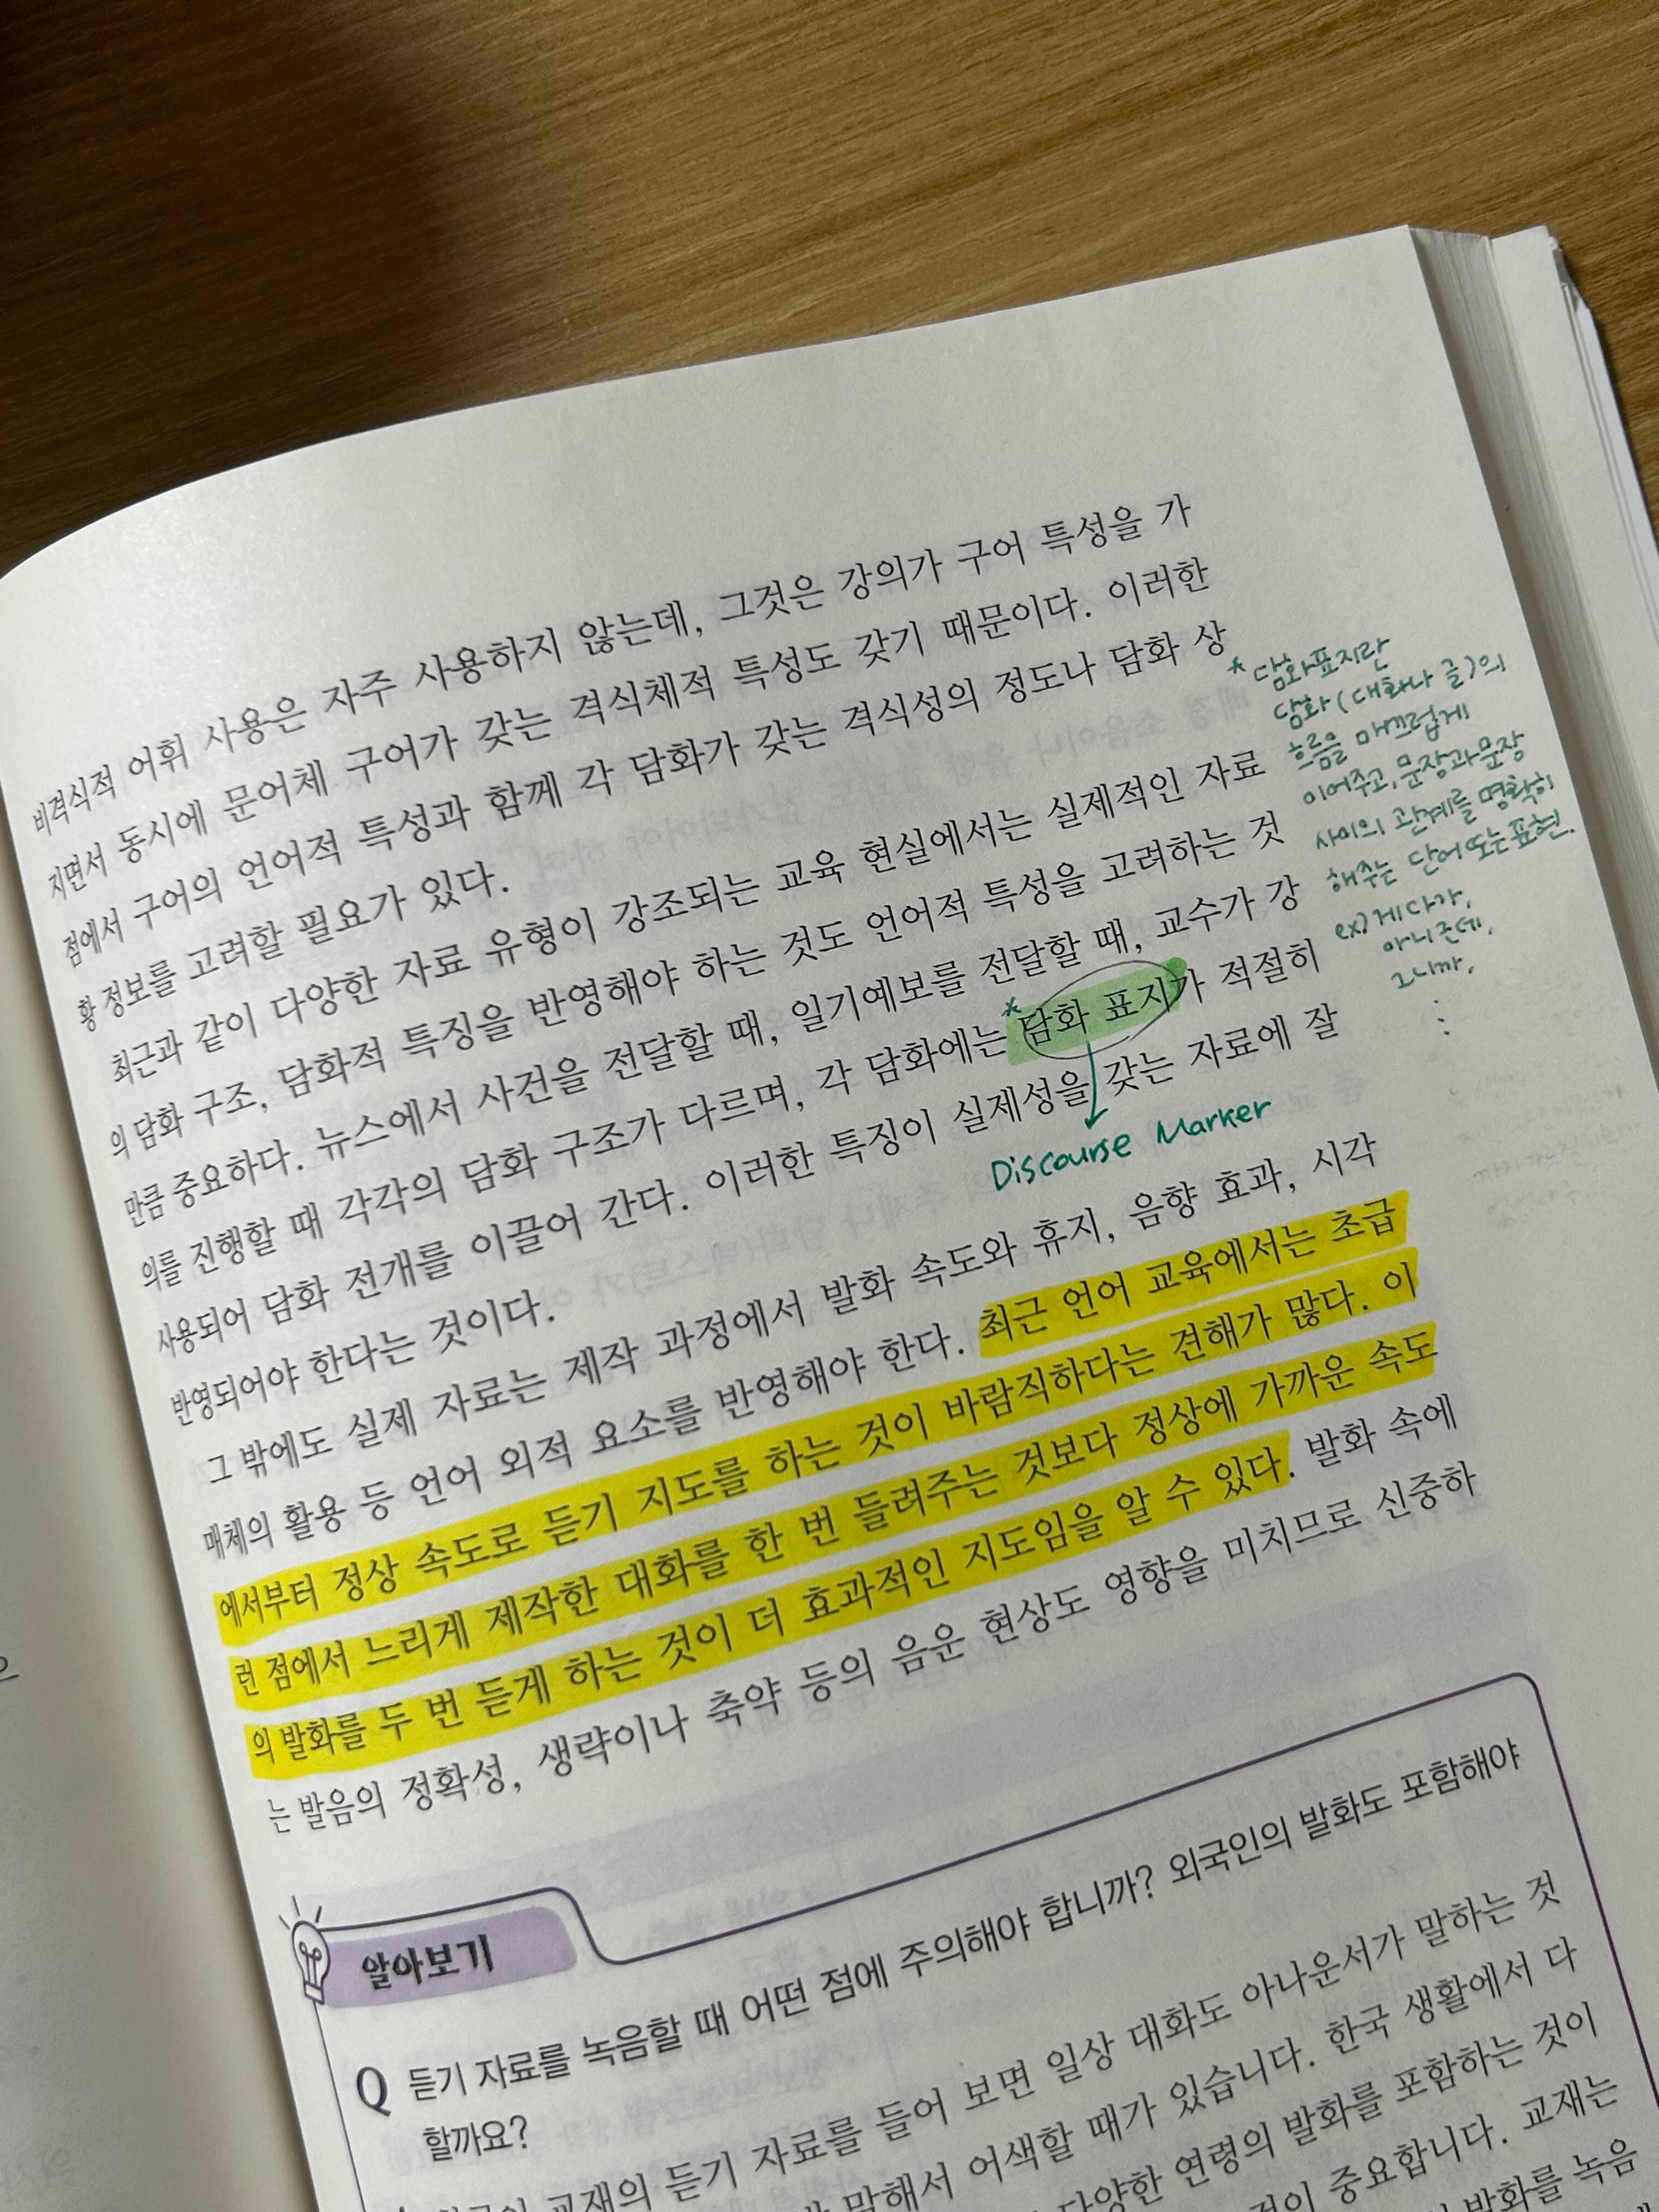 비격식적 어휘 사용은 자주 사용하지 않는데, 그것은 강의가 구어 특성을 가
지면서 동시에 문어체 구어가 갖는 격식체적 특성도 갖기 때문이다. 이러한
점에서 구어의 언어적 특성과 함께 각 담화가 갖는 격식성의 정도나 담화 상
황 정보를 고려할 필요가 있다.
최근과 같이 다양한 자료 유형이 강조되는 교육 현실에서는 실제적인 자료
의 담화 구조, 담화적 특징을 반영해야 하는 것도 언어적 특성을 고려하는 것
만큼 중요하다. 뉴스에서 사건을 전달할 때, 일기예보를 전달할 때, 교수가 강
의를 진행할 때 각각의 담화 구조가 다르며, 각 담화에는 *담화 표지가 적절히
사용되어 담화 전개를 이끌어 간다. 이러한 특징이 실제성을 갖는 자료에 잘
반영되어야 한다는 것이다.
Discourse Marker
* 담화표지란
담화(대화나 글)의
흐름을 매끄럽게
이어주고, 문장과 문장
사이의 관계를 명확히
해주는 단어 또는 표현.
ex) 게다가,
아니 근데,
그니까,
:
그 밖에도 실제 자료는 제작 과정에서 발화 속도와 휴지, 음향 효과, 시각
매체의 활용 등 언어 외적 요소를 반영해야 한다. 최근 언어 교육에서는 초급
에서부터 정상 속도로 듣기 지도를 하는 것이 바람직하다는 견해가 많다. 이
런 점에서 느리게 제작한 대화를 한 번 들려주는 것보다 정상에 가까운 속도
의 발화를 두 번 듣게 하는 것이 더 효과적인 지도임을 알 수 있다. 발화 속에
는 발음의 정확성, 생략이나 축약 등의 음운 현상도 영향을 미치므로 신중하
알아보기
Q 듣기 자료를 녹음할 때 어떤 점에 주의해야 합니까? 외국인의 발화도 포함해야
할까요?
교재의 듣기 자료를 들어 보면 일상 대화도 아나운서가 말하는 것
말해서 어색할 때가 있습니다. 한국 생활에서 다
다양한 연령의 발화를 포함하는 것이
것이 중요합니다. 교재는
발화를 녹음